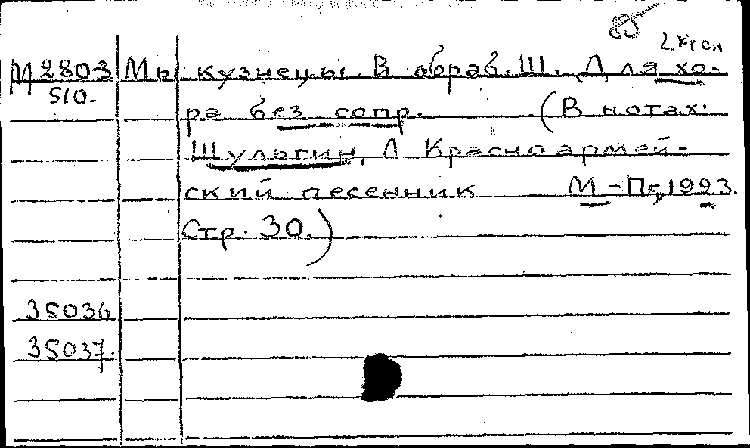 85
2 экс.
М 2803 Мы кузнецы. В обраб. Ш. Для хо-
510. ра без сопр. (В нотах:
Шульгин, Л Красноармей-
ский песенник М-Пг, 1923.
Стр. 30.)
35036
35037.